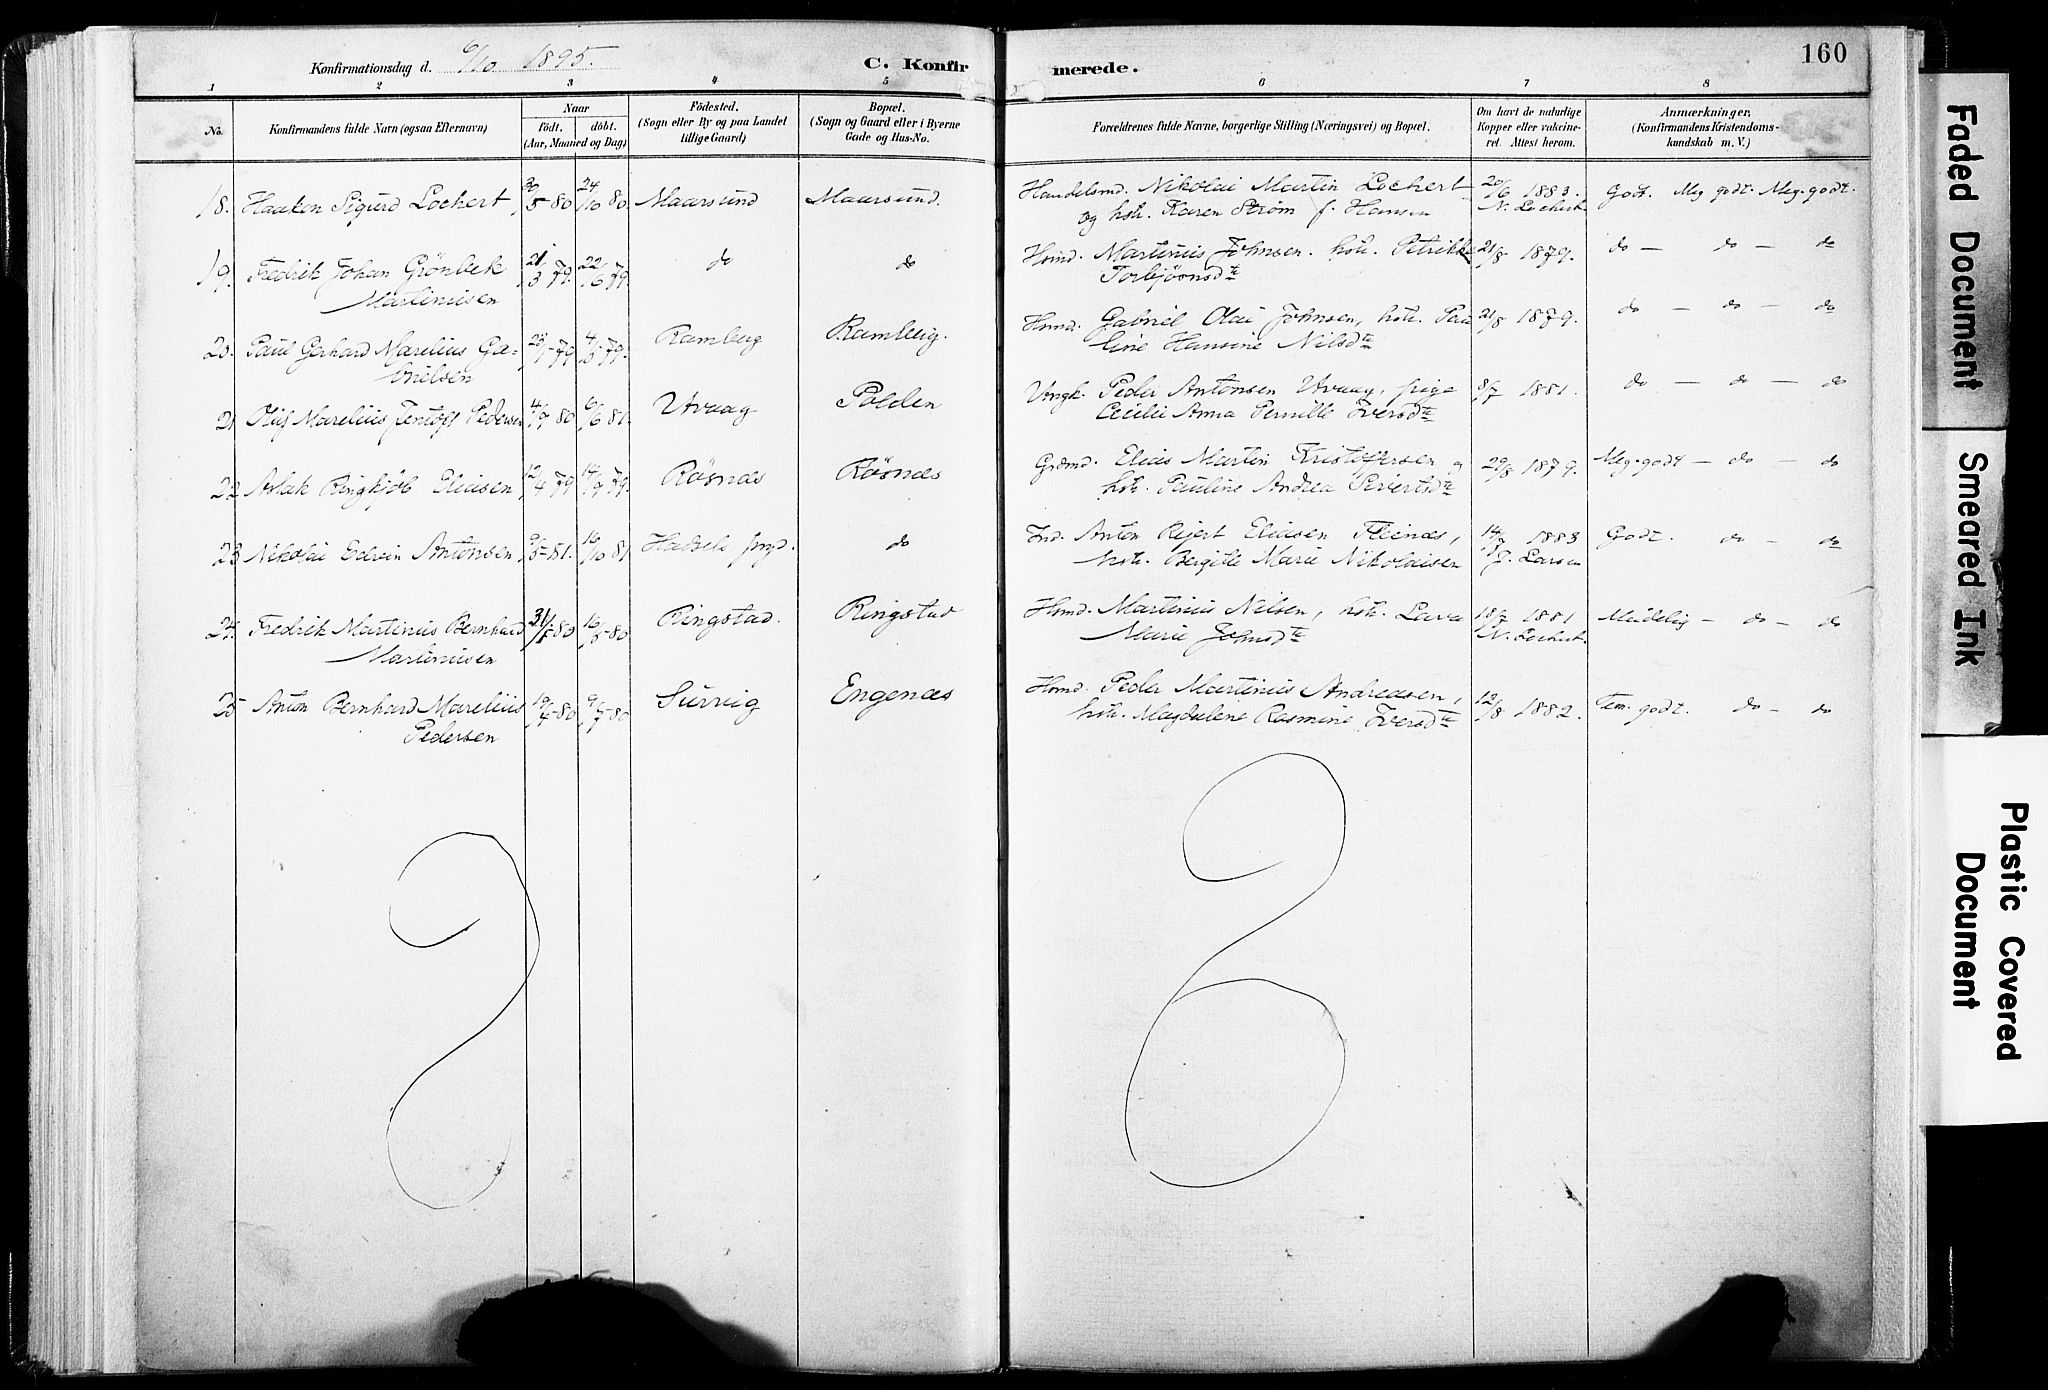 Konfirmationsdag d. 6/10 1895.
C. Konfirmerede.
160
1 2 3 4 5 6 7 8
No.
Konfirmandens fulde Navn (ogsaa Efternavn)
Naar
födt. döbt.
(Aar, Maaned og Dag)
Födested.
(Sogn eller By og paa Landet
tillige Gaard)
Bopæl.
(Sogn og Gaard eller i Byerne
Gade og Hus-No.
Forældrenes fulde Navne, borgerlige Stilling (Næringsvei) og Bopæl.
Om havt de naturlige
Kopper eller vakcine-
ret. Attest herom.
Anmærkninger,
(Konfirmandens Kristendoms-
kundskab m. V.)
18. Haaken Sigurd Lochert 30/5 80 24/10 80 Maarsund Maarsund. Handelsmd. Nikolai Martin Lochert 20/6 1883. Godt. Meg godt. Meg. godt.
og hstr. Karen Strøm f. Hansen N. Lochert
19. Fredrik Johan Grönbek 21/3 79. 22/6 79. do do Hsmd. Martinus Johnsen. hstr. Petrikke 21/8 1879. do — do — do
Martinusen Torbjörnsdtr
20. Paul Gerhard Marelius Ga- 23/1 79 4/5 79. Ramberg Ramberg. Hsmd. Gabriel Olai Johnsen, hstr. Pau 21/8 1879. do — do — do
brielsen line Hansine Nilsdtr
21 Oluf Marelius Jentoft Pedersen 4/9 80 6/6 81. Utvaag Polden Ungk. Peder Antonsen Utvaag, pige 8/7 1881. do — do — do
Cecilie Anna Pernille Iversdtr
22 Aslak Ringkjöb Eliasen 12/4 79 14/9 79. Rösnæs Rösnæs Grdmd. Elias Martin Kristoffersen og 29/8 1879. Meg. godt — do — do
hstr. Pauline Andrea Sivertsdtr
23 Nikolai Edvin Antonsen 9/5 81. 16/10 81 Hadsels prgd. do Ind. Anton Rejert Eliasen Fleinæs, 14/7 1883 Godt. do — do
hstr. Bergitte Marie Nikolaisen J. Larsen
24. Fredrik Martinus Bernhard 31/1 80 16/5 80 Ringstad. Ringstad Hsmd. Martinus Nilsen, hstr. Lava 18/7 1881 Maadelig — do — do
Martinusen Marie Johnsdtr N. Lochert
25 Anton Bernhard Marelius 19/4 80 9/7 80 Survig Engenæs Hsmd. Peder Martinus Andreasen, 12/8 1882. Tem. godt. do — do
Pedersen hstr. Magdalene Rasmine Iversdtr
Faded Document
Smeared Ink
Plastic Covered
Document